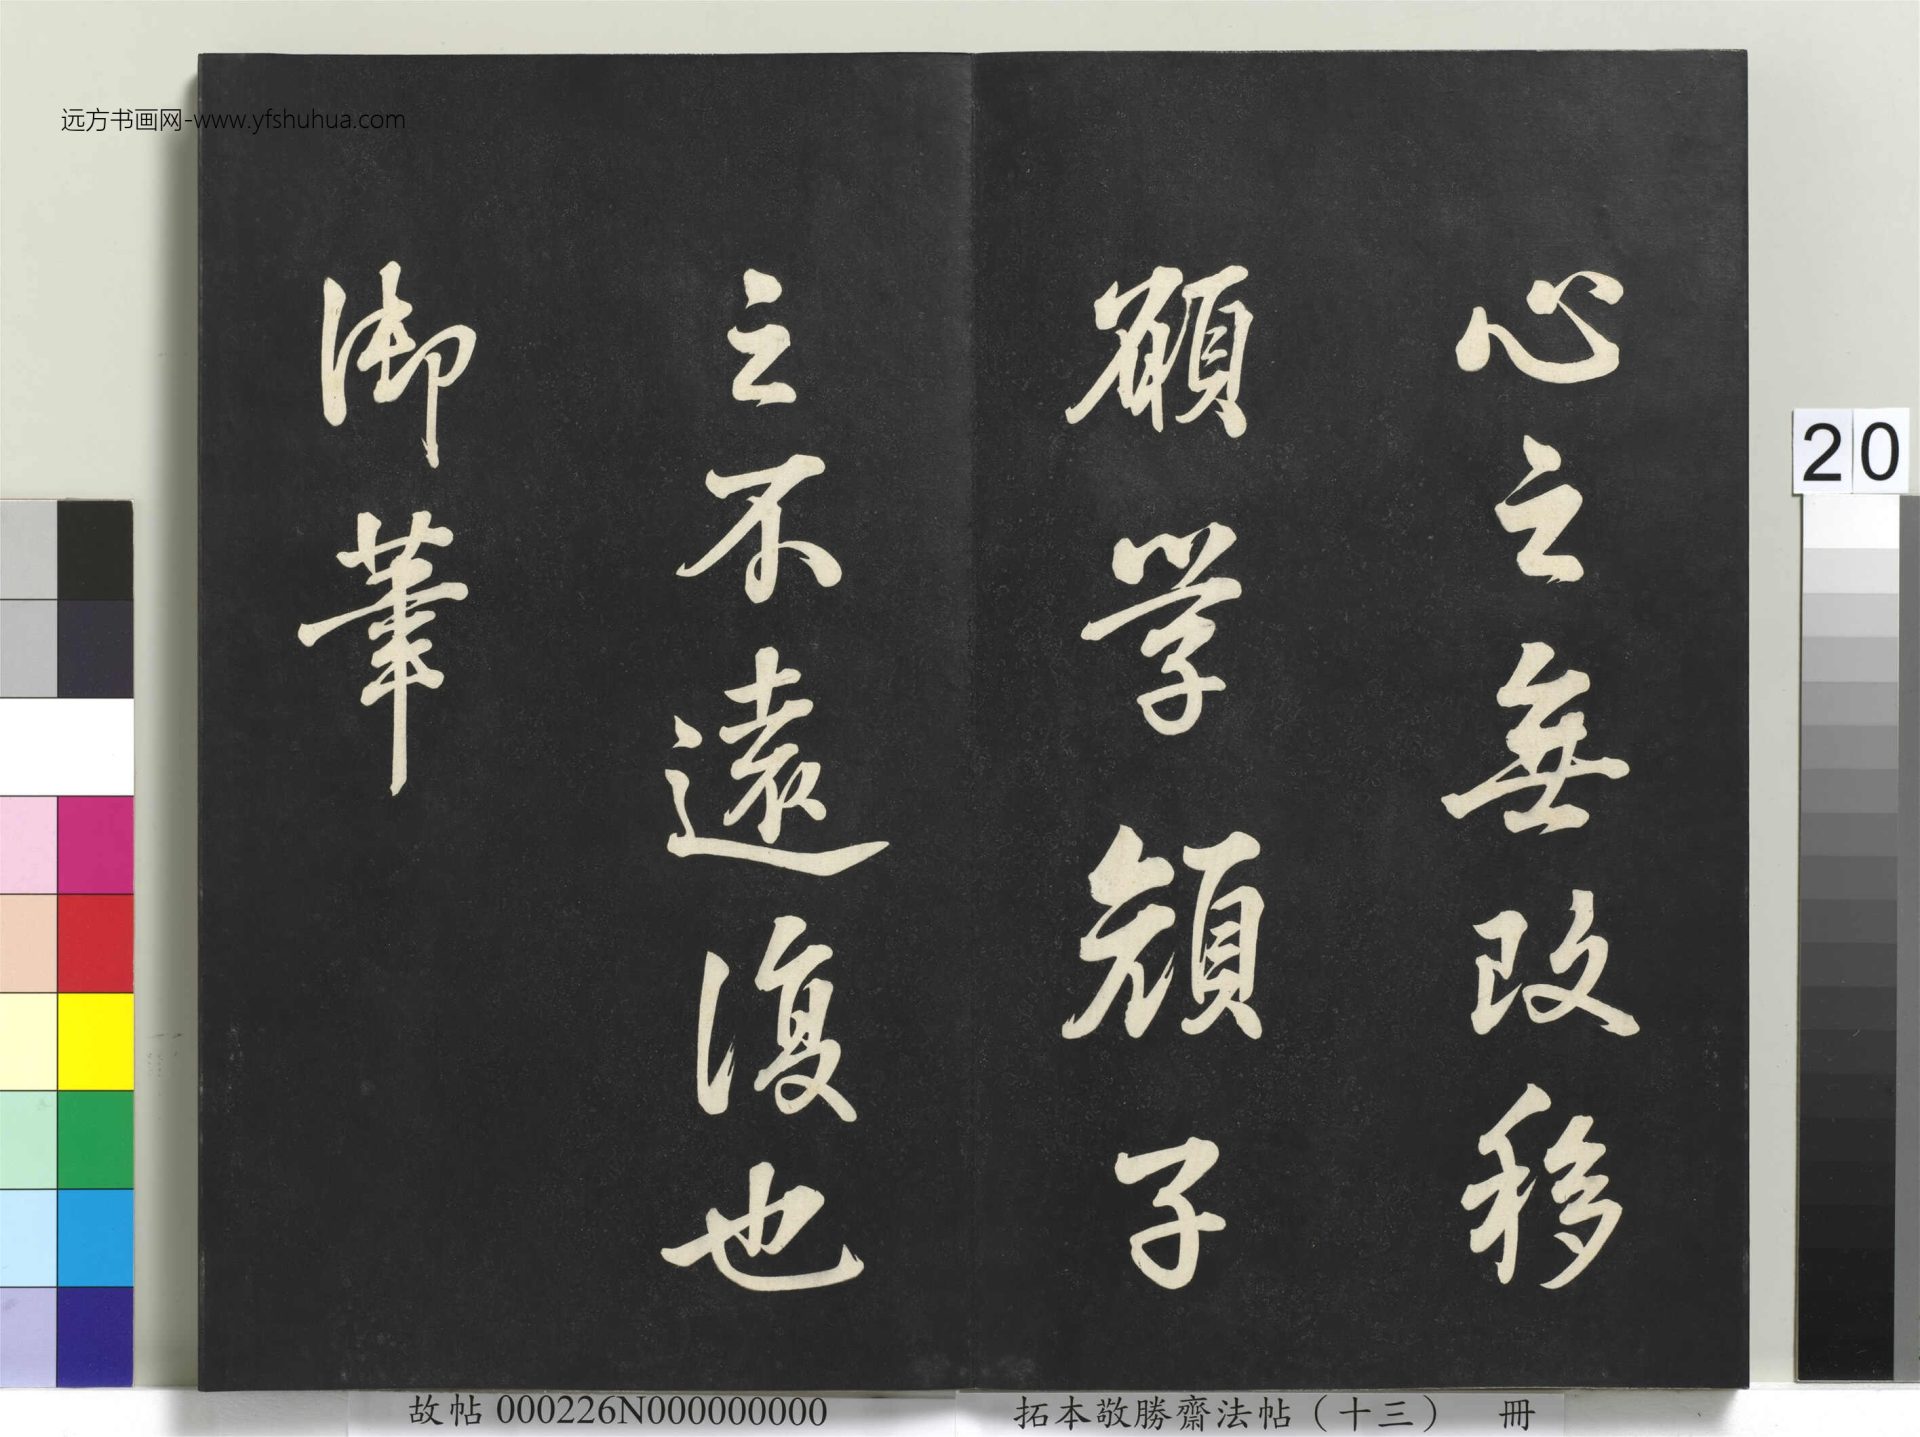 远方书画网-www.yfshuhua.com
心之無改移
願学顔子
之不遠復也
御筆
20
故帖000226N000000000
拓本敬勝齋法帖（十三） 冊